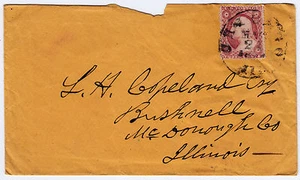 L. H. Copeland Esq
Bushnell
McDonough Co
Illinois